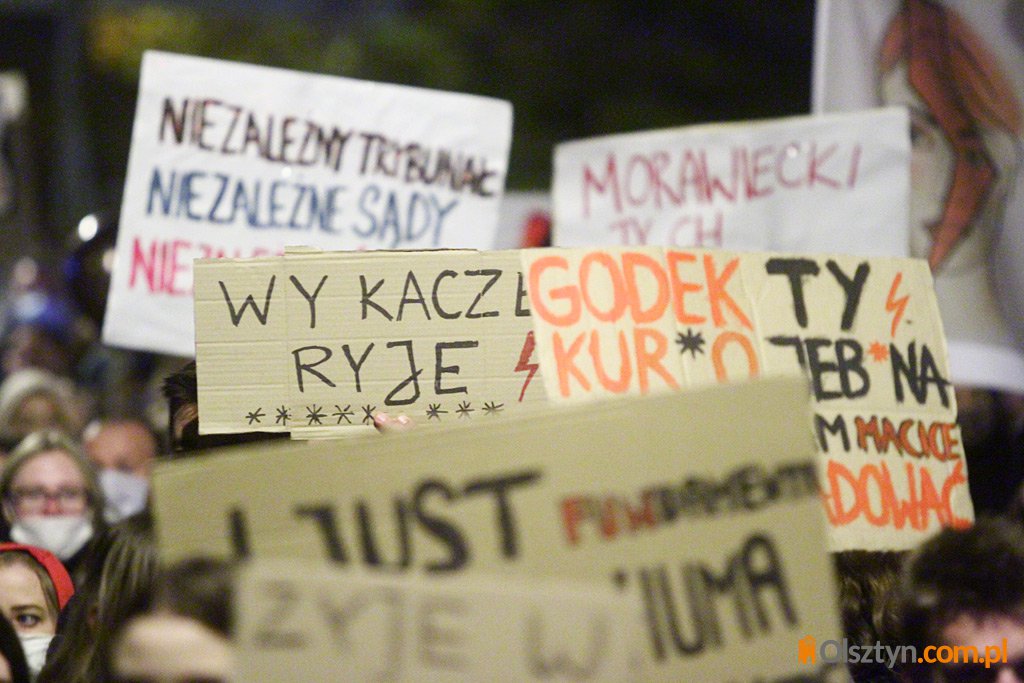 NIEZALEŻNY TRYBUNAŁ
NIEZALEŻNE SĄDY
MORAWIECKI
TY CH
WY KACZE
RYJE
********
GODEK
KUR*O
TY
JEB*NA
MACICE
ADOWAĆ
JUST FUNDAMENTU
ŻYJE W
Olsztyn.com.pl